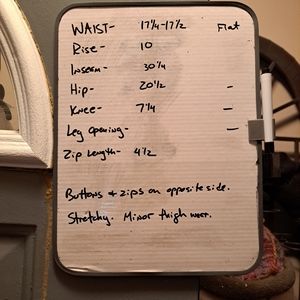 WAIST- 17 1/4 - 17 1/2 Flat
Rise- 10
Inseam- 30 1/4
Hip- 20 1/2 -
Knee- 7 1/4 -
Leg Opening- -
Zip Length- 4 1/2
Buttons & zips on opposite side.
Stretchy. Minor thigh wear.